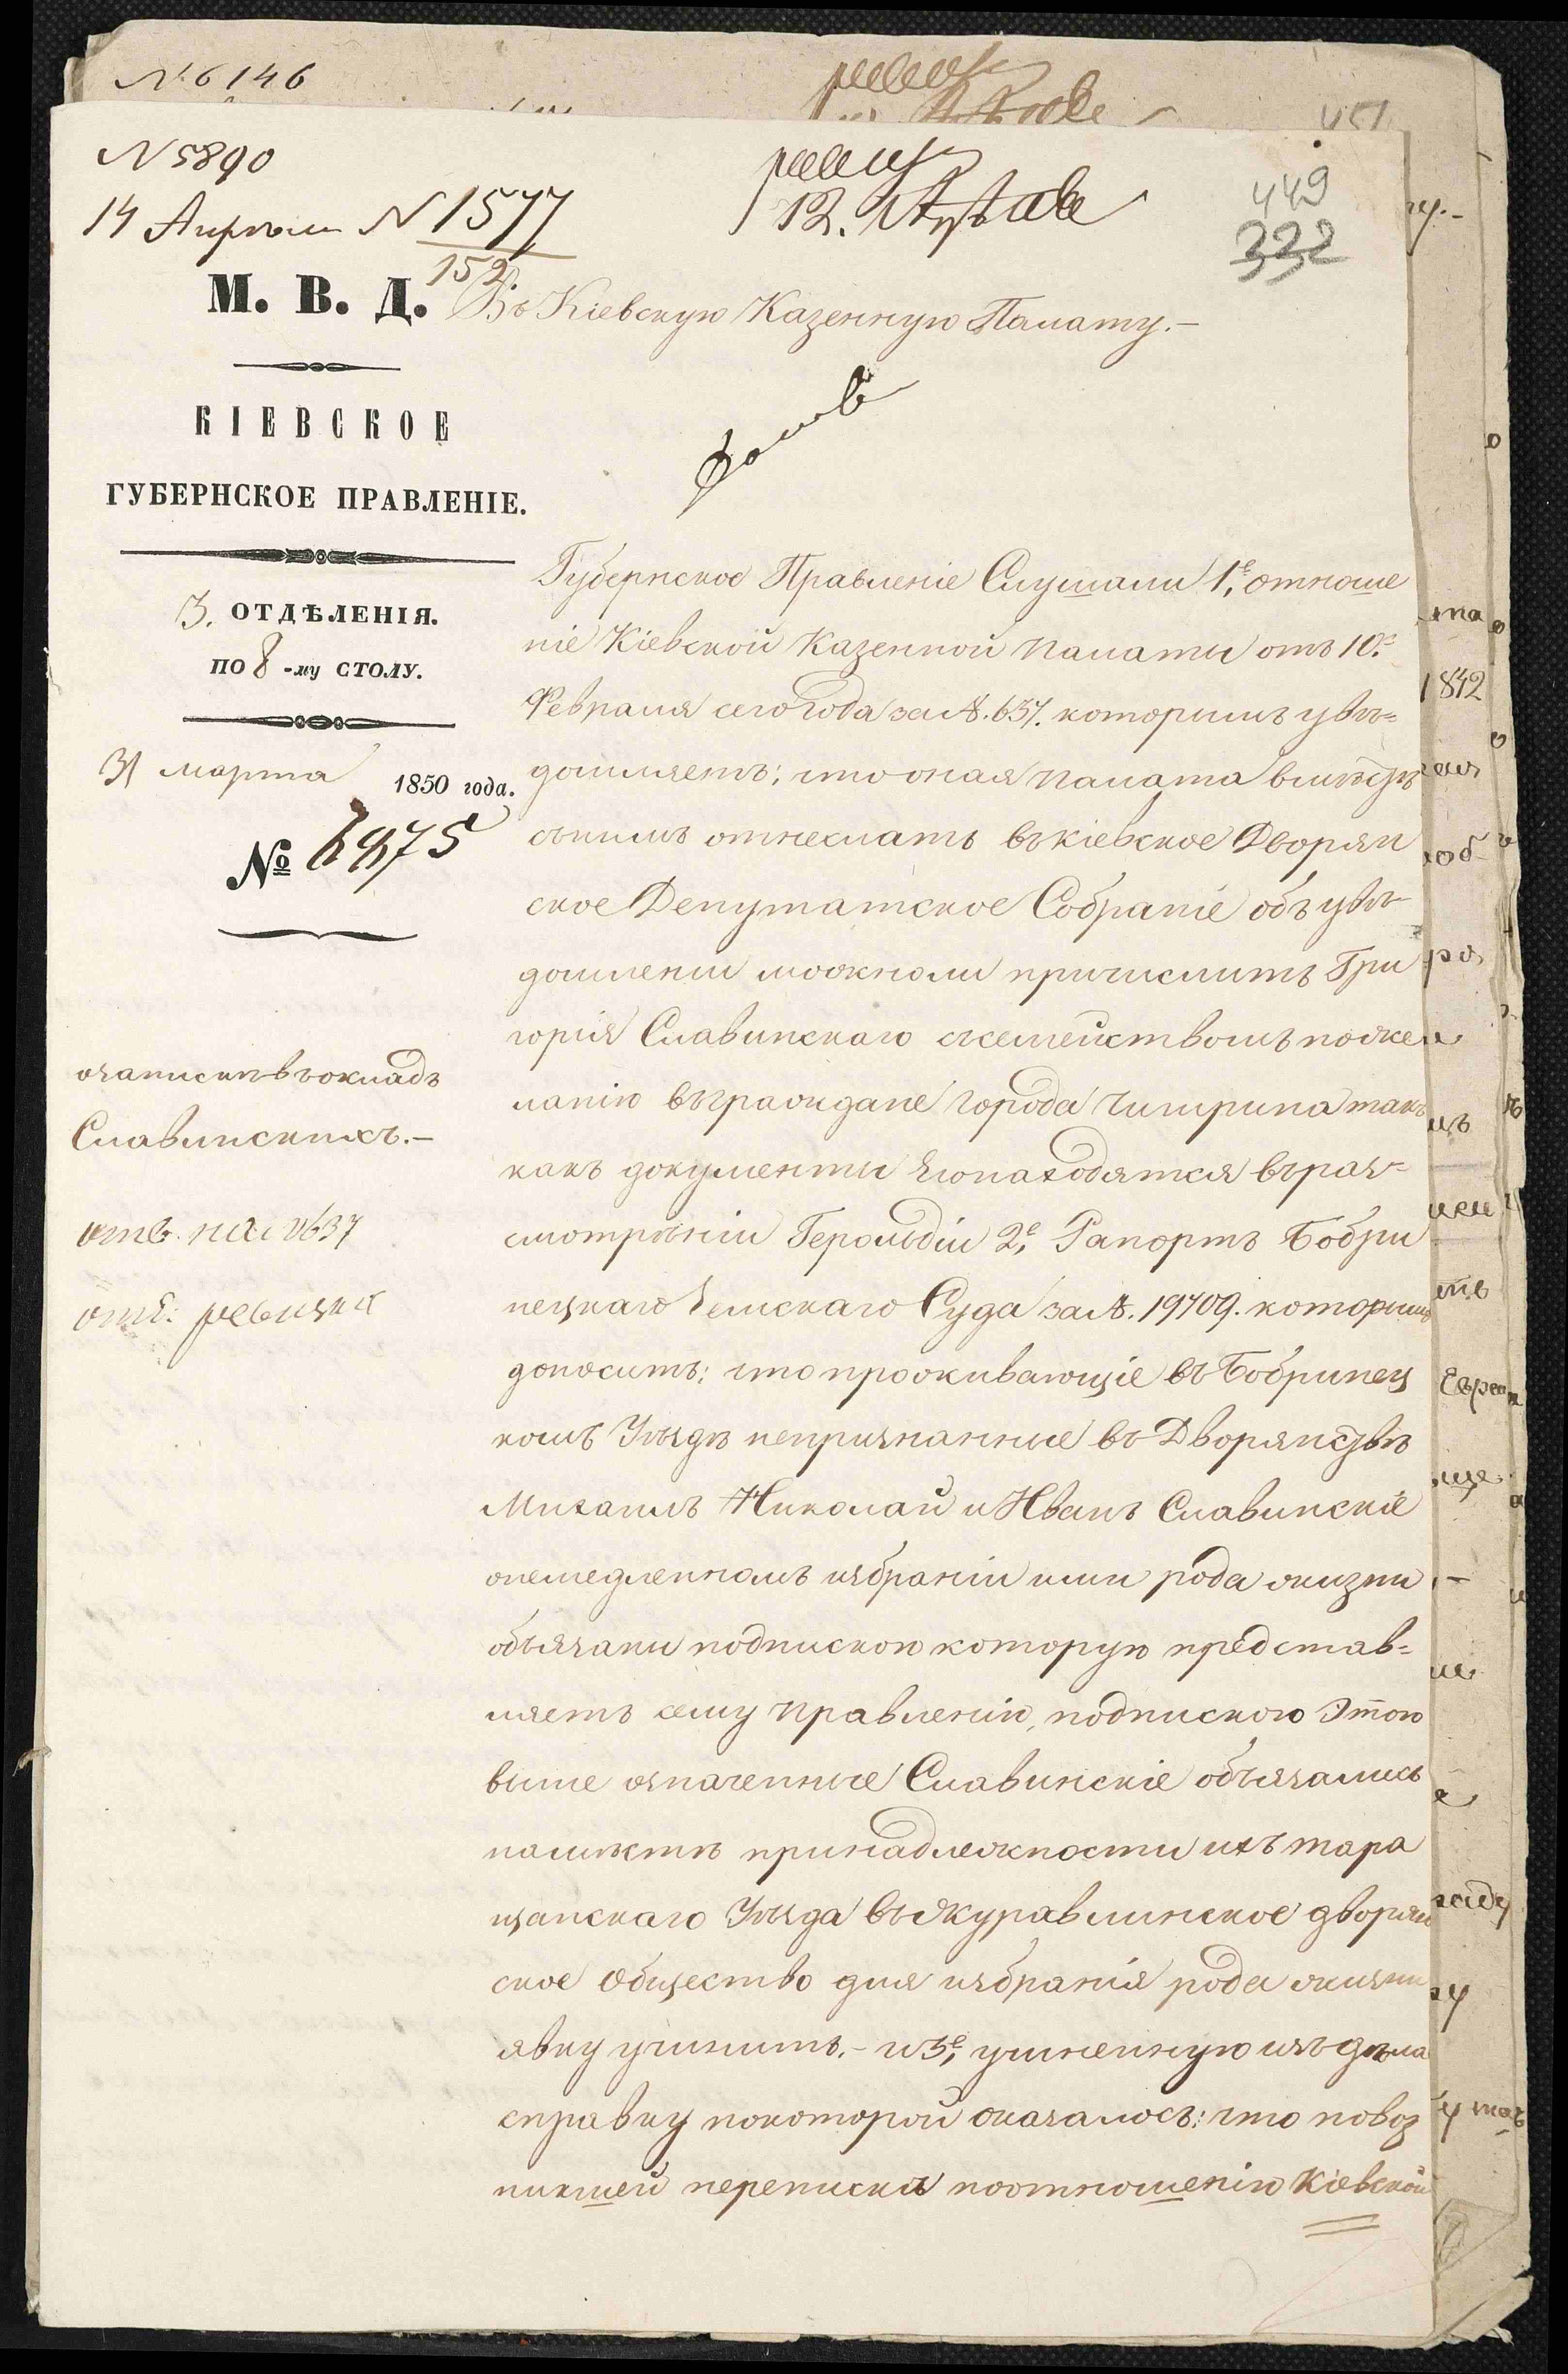 № 6146
N 5890
14 Апреля N 1577
152
12. Апреля
449
332
М. В. Д.
Въ Кіевскую Казенную Палату.-
КІЕВСКОЕ
ГУБЕРНСКОЕ ПРАВЛЕНІЕ.
3. ОТДѢЛЕНІЯ.
ПО 8 -му СТОЛУ.
31 марта 1850 года.
№ 6975
о записке въ окладъ
Славинскихъ.-
отв. на № 637
отд: ревизск
Губернское Правленіе Слушали 1е, отноше
ніе Кіевской Казенной палаты отъ 10го
Февраля сего года за №. 637. которымъ увѣ=
домляетъ; что оная палата вмѣстѣ
съ симъ отнеслась въ кіевское Дворян
ское Депутатское Собраніе объ увѣ-
домленіи можноли причислить Гри
горія Славинскаго съ семействомъ по же
ланію въ граждане города Чигрина такъ
какъ документы его находятся въ раз=
смотрѣніи Герольдіи 2е, Рапортъ Бобри
нецкаго Земскаго Суда за №. 19709. которымъ
доноситъ; что проживающіе въ Бобринец
комъ Уѣздѣ непризнанные въ Дворянствѣ
Михаилъ Николай и Иванъ Славинскіе
о немедленномъ избраніи ими рода жизни
обязаны подпискою которую представ=
ляетъ сему правленію, подпискою этою
выше означенные Славинскіе обязались
на мѣстѣ принадлежности ихъ тара
щанскаго Уѣзда въ Журавлинское дворян
ское Общество для избранія рода жизни
явку учинить.- и 3е, учиненную изъ дѣла
справку по которой оказалось: что по воз
никшей перепискѣ по отношенію Кіевской